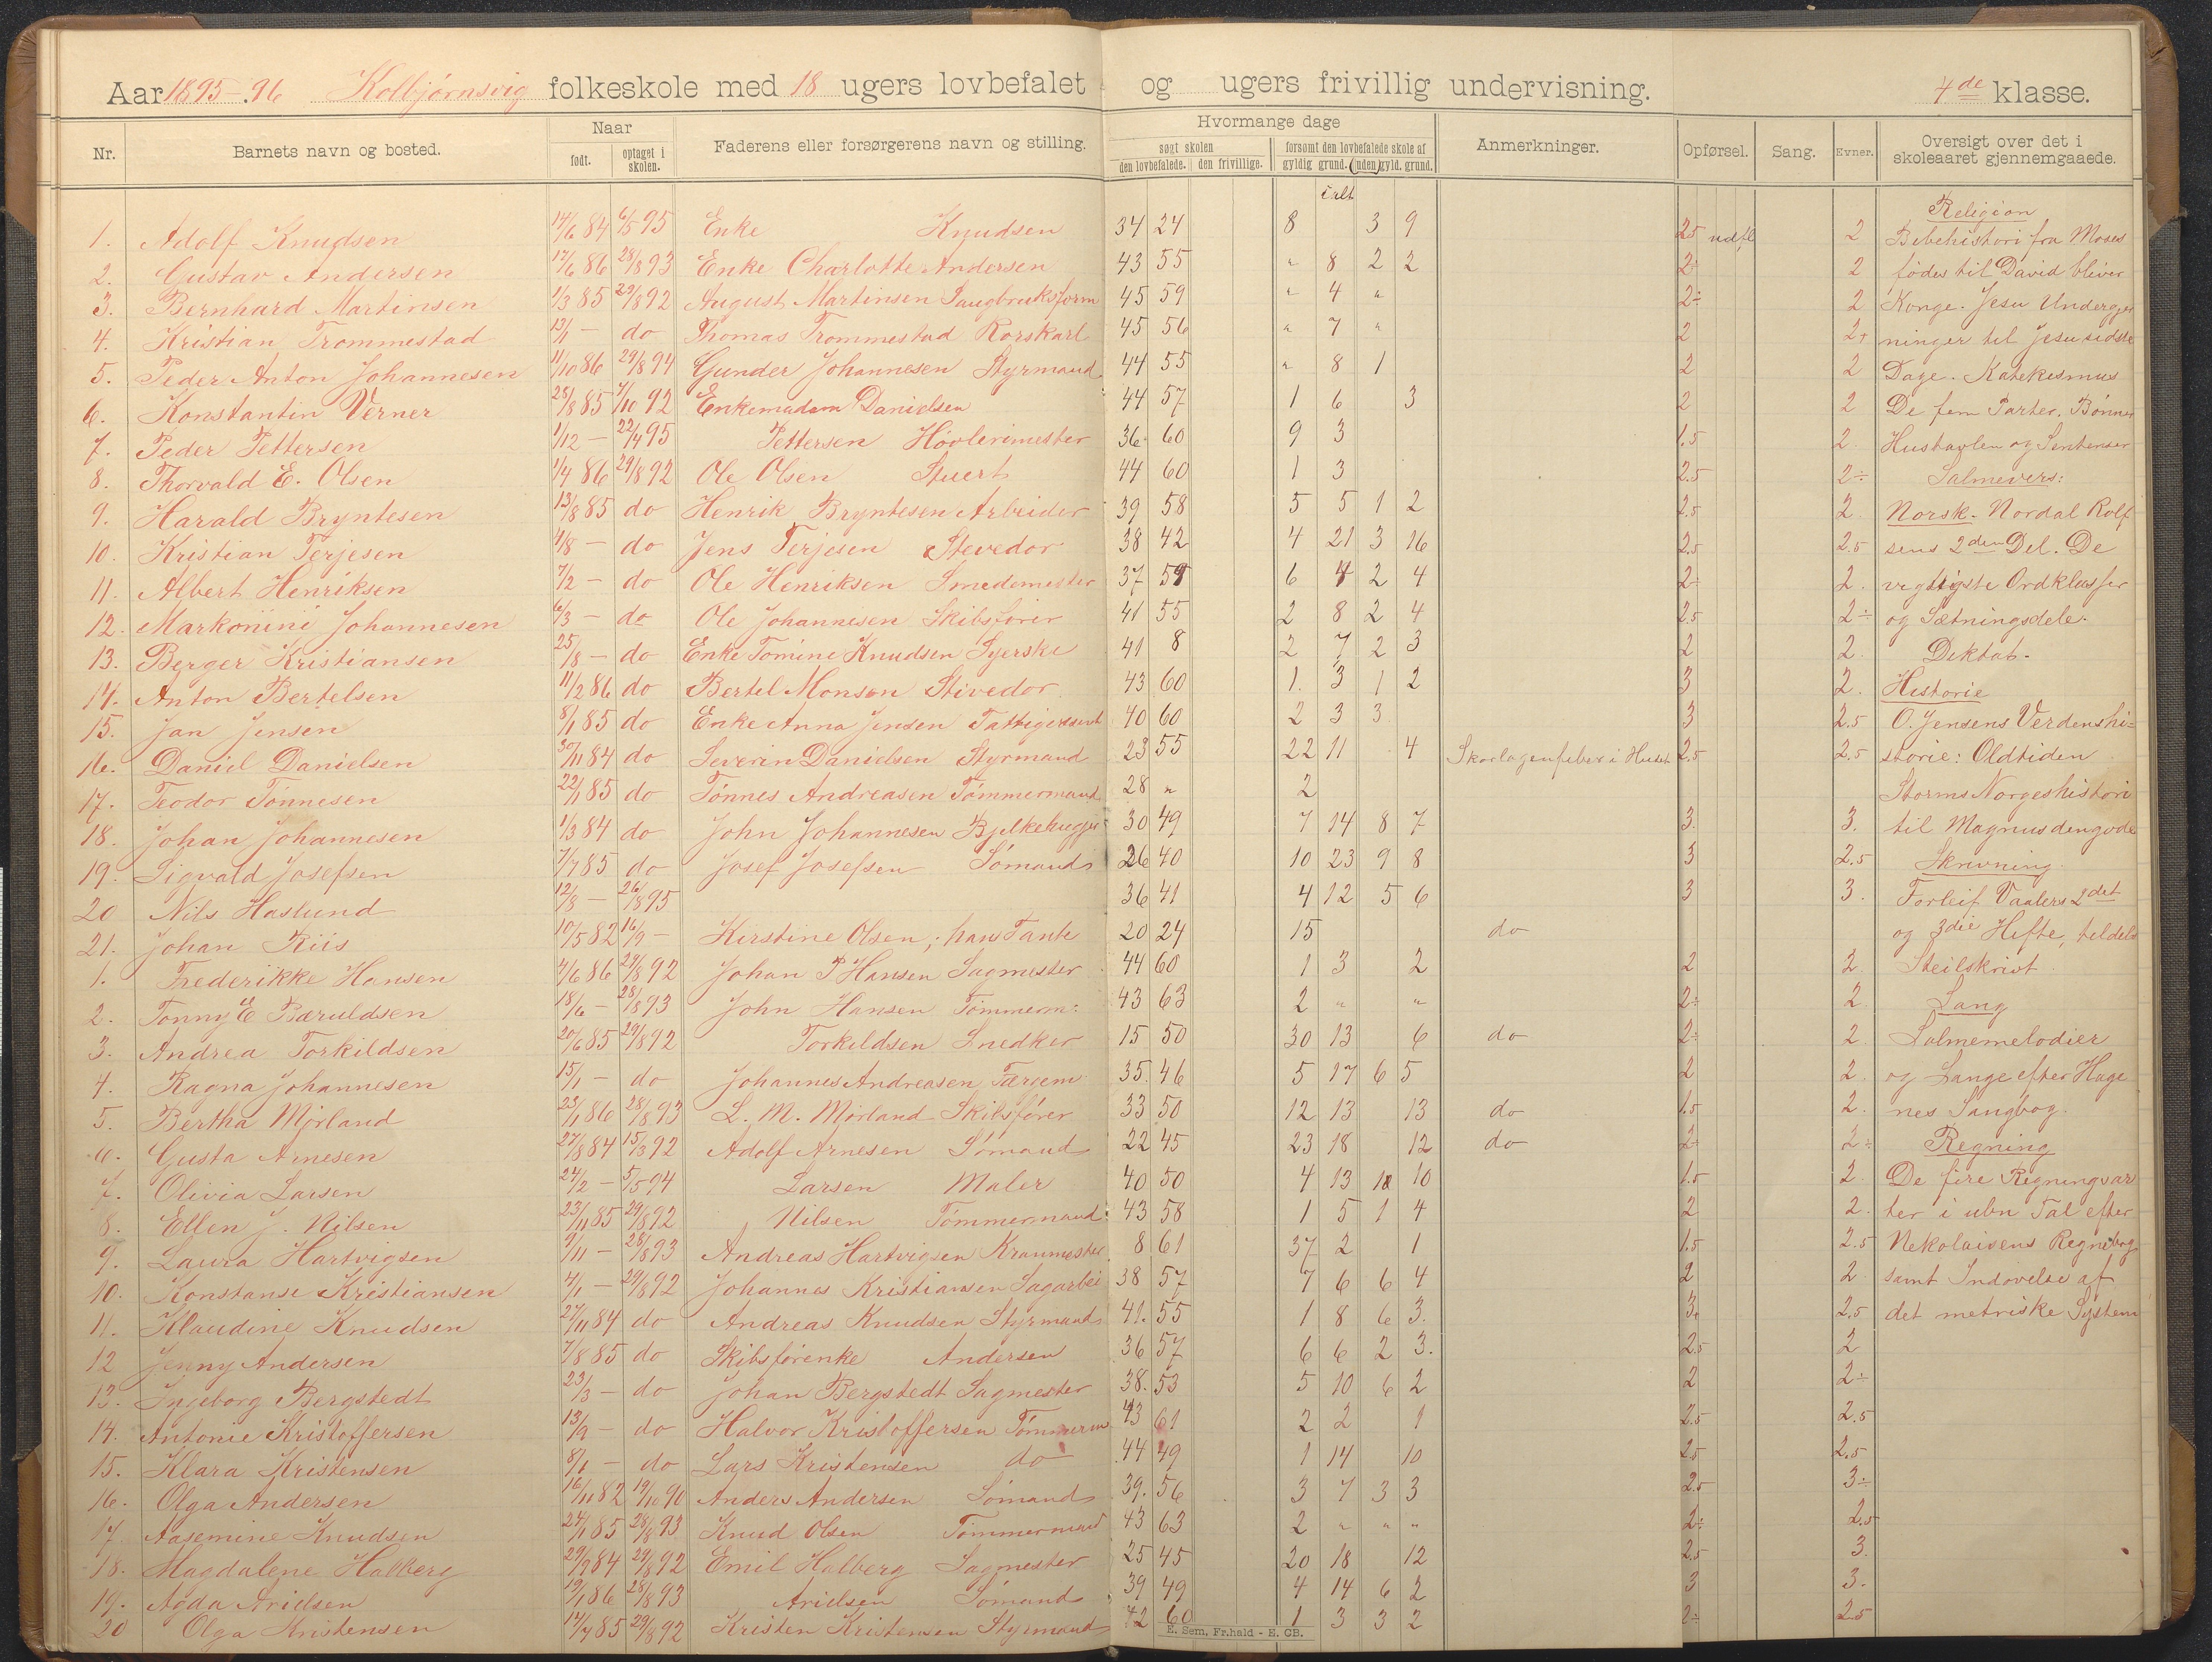 Aar 1895-96 Kolbjørnsvig folkeskole med 18 ugers lovbefalet og ugers frivillig undervisning. 4de klasse.
Nr. Barnets navn og bosted. Naar født. optaget i skolen. Faderens eller forsørgerens navn og stilling. Hvormange dage søgt skolen den lovbefalede. den frivillige. forsømt den lovbefalede skole af gyldig grund. (uden) gyld. grund. Anmerkninger. Opførsel. Sang. Evner. Oversigt over det i skoleaaret gjennemgaaede.
ialt
Religion
1. Adolf Knudsen 14/6 84 6/5 95 Enke Knudsen 34 24 8 3 9 2.5 2 Bibehistori fra Moses
2. Gustav Andersen 17/6 86 28/8 93 Enke Charlotte Andersen 43 55 " 8 2 2 2÷ 2 fødes til David bliver
3. Bernhard Martinsen 1/3 85 29/8 92 August Martinsen Saugbruksform 45 59 " 4 " 2÷ 2 Konge. Jesu Undergjer
4. Kristian Trommestad 13/1 - do Thomas Trommestad Korskarl 45 56 " 7 " 2 2+ ninger til Jesu sidste
5. Peder Anton Johannesen 11/10 86 29/8 94 Gunder Johannesen Styrmand 44 55 " 8 1 2 2 Dage. Katekesmus
6. Konstantin Verner 25/8 85 7/10 92 Enkemadam Danielsen 44 57 1 6 3 2 2 De fem Parter. Bønner
7. Peder Pettersen 1/12 - 22/4 95 Pettersen Høvlerimester 36 60 9 3 1.5 2. Hustavlen og Sentenser
8. Thorvald E. Olsen 1/4 86 29/8 92 Ole Olsen Stuert 44 60 1 3 2.5 2÷ Salmevers:
9. Harald Bryntesen 13/8 85 do Henrik Bryntesen Arbeider 39 58 5 5 1 2 2.5 2. Norsk. Nordal Rolf
10. Kristian Terjesen 4/8 - do Jens Terjesen Stevedor 38 42 4 21 3 16 2.5 2.5 sens 2den Del. De
11. Albert Henriksen 7/2 - do Ole Henriksen Smedemester 37 59 6 4 2 4 2÷ 2. vigtigste Ordklasser
12. Markonini Johannesen 6/3 - do Ole Johannesen Skibsfører 41 55 2 8 2 4 2.5 2÷ og Sætningsdele.
13. Berger Kristiansen 25/8 - do Enke Tomine Knudsen Syerske 41 8 2 7 2 3 2 2. Diktat.
14. Anton Bertelsen 11/2 86 do Bertel Monsen Stivedor 43 60 1. 3 1 2 3 2. Historie
15. Jan Jensen 8/1 85 do Enke Anna Jensen 40 60 2 3 3 3 2.5 O. Jensens Verdenshi=
16. Daniel Danielsen 30/11 84 do Severin Danielsen Styrmand 23 55 22 11 4 Skarlagenfeber i Huset 2.5 2.5 storie: Oldtiden
17. Teodor Tønnesen 22/1 85 do Tønnes Andreasen Tømmermand 28 " 2 Storms Norgeshistori
18. Johan Johannesen 1/3 84 do John Johannesen Bjelkehugger 30 49 7 14 8 7 3. 3. til Magnus den gode
19. Sigvald Josefsen 7/7 85 do Josef Josefsen Sømand 26 40 10 23 9 8 3 2.5 Skrivning.
20 Nils Haslund 12/8 - 26/8 95 36 41 4 12 5 6 3 3. Torleif Vaalers 2det
21. Johan Riis 10/5 82 16/9 - Kirstine Olsen; hans Tante 20 24 15 do og 3die Hefte, tildels
1. Frederikke Hansen 4/6 86 29/8 92 Johan P Hansen Sagmester 44 60 1 3 2 2 2. Steilskrift.
2. Tonny E Baruldsen 18/6 - 28/8 93 John Hansen Tømmerm: 43 63 2 " " 2÷ 2 Sang
3. Andrea Torkildsen 20/6 85 29/8 92 Torkildsen Snedker 15 50 30 13 6 do 2÷ 2 Salmemelodier
4. Ragna Johannesen 15/1 - do Johannes Andreasen Færgem 35. 46 5 17 6 5 2 2. og Sange efter Hage
5. Bertha Mørland 23/1 86 28/8 93 L. M. Mørland Skibsfører 33 50 12 13 13 do 1.5 2. nes Sangbog.
6. Gusta Arnesen 27/8 84 15/3 92 Adolf Arnesen Sømand 22 45 23 18 12 do 2÷ 2÷ Regning
7. Olivia Larsen 24/2 - 5/5 94 Larsen Maler 40 50 4 13 10 1.5 2. De fire Regningsar
8. Ellen J. Nilsen 23/11 85 29/8 92 Nilsen Tømmermand 43 58 1 5 1 4 2 2. ter i ubn Tal efter
9. Laura Hartvigsen 9/11 - 28/8 93 Andreas Hartvigsen Kranmester 8 61 37 2 1 1.5 2.5 Nekolaisens Regnebog
10. Konstanse Kristiansen 4/1 - 29/8 92 Johannes Kristiansen Sagarbei 38 57 7 6 6 4 2 2 samt Indøvelse af
11. Klaudine Knudsen 27/11 84 do Andreas Knudsen Styrmand 41. 55 1 8 6 3. 3. 2.5 det metriske System
12 Jenny Andersen 7/8 85 do Skibsførenke Andersen 36 57 6 6 2 3. 2.5 2
13. Ingeborg Bergstedt 23/3 - do Johan Bergstedt Sagmester 38. 53 5 10 6 2 2 2÷
14. Antonie Kristoffersen 13/9 - do Halvor Kristoffersen Tømmerm 43 61 2 2 1 2.5 2.5
15. Klara Kristensen 8/1 - do Lars Kristensen do 44 49 1 14 10 2.5 2.5
16. Olga Andersen 16/11 82 19/10 90 Anders Andersen Sømand 39. 56 3 7 3 3 2.5 3÷
17. Aasemine Knudsen 24/1 85 28/8 93 Knud Olsen Tømmermand 43 63 2 " " " 2÷ 2.5
18. Magdalene Halberg 29/9 84 29/8 92 Emil Halberg Sagmester 25 45 20 18 12 2.5 3.
19. Agda Arielsen 19/1 86 28/8 93 Arielsen Sømand 39 49 4 14 6 2 3 3.
20 Olga Kristensen 14/7 85 29/8 92 Kristen Kristensen Styrmand 42 60 1 3 3 2 2÷ 2.5
E. Sem, Fr.hald - E. GB.